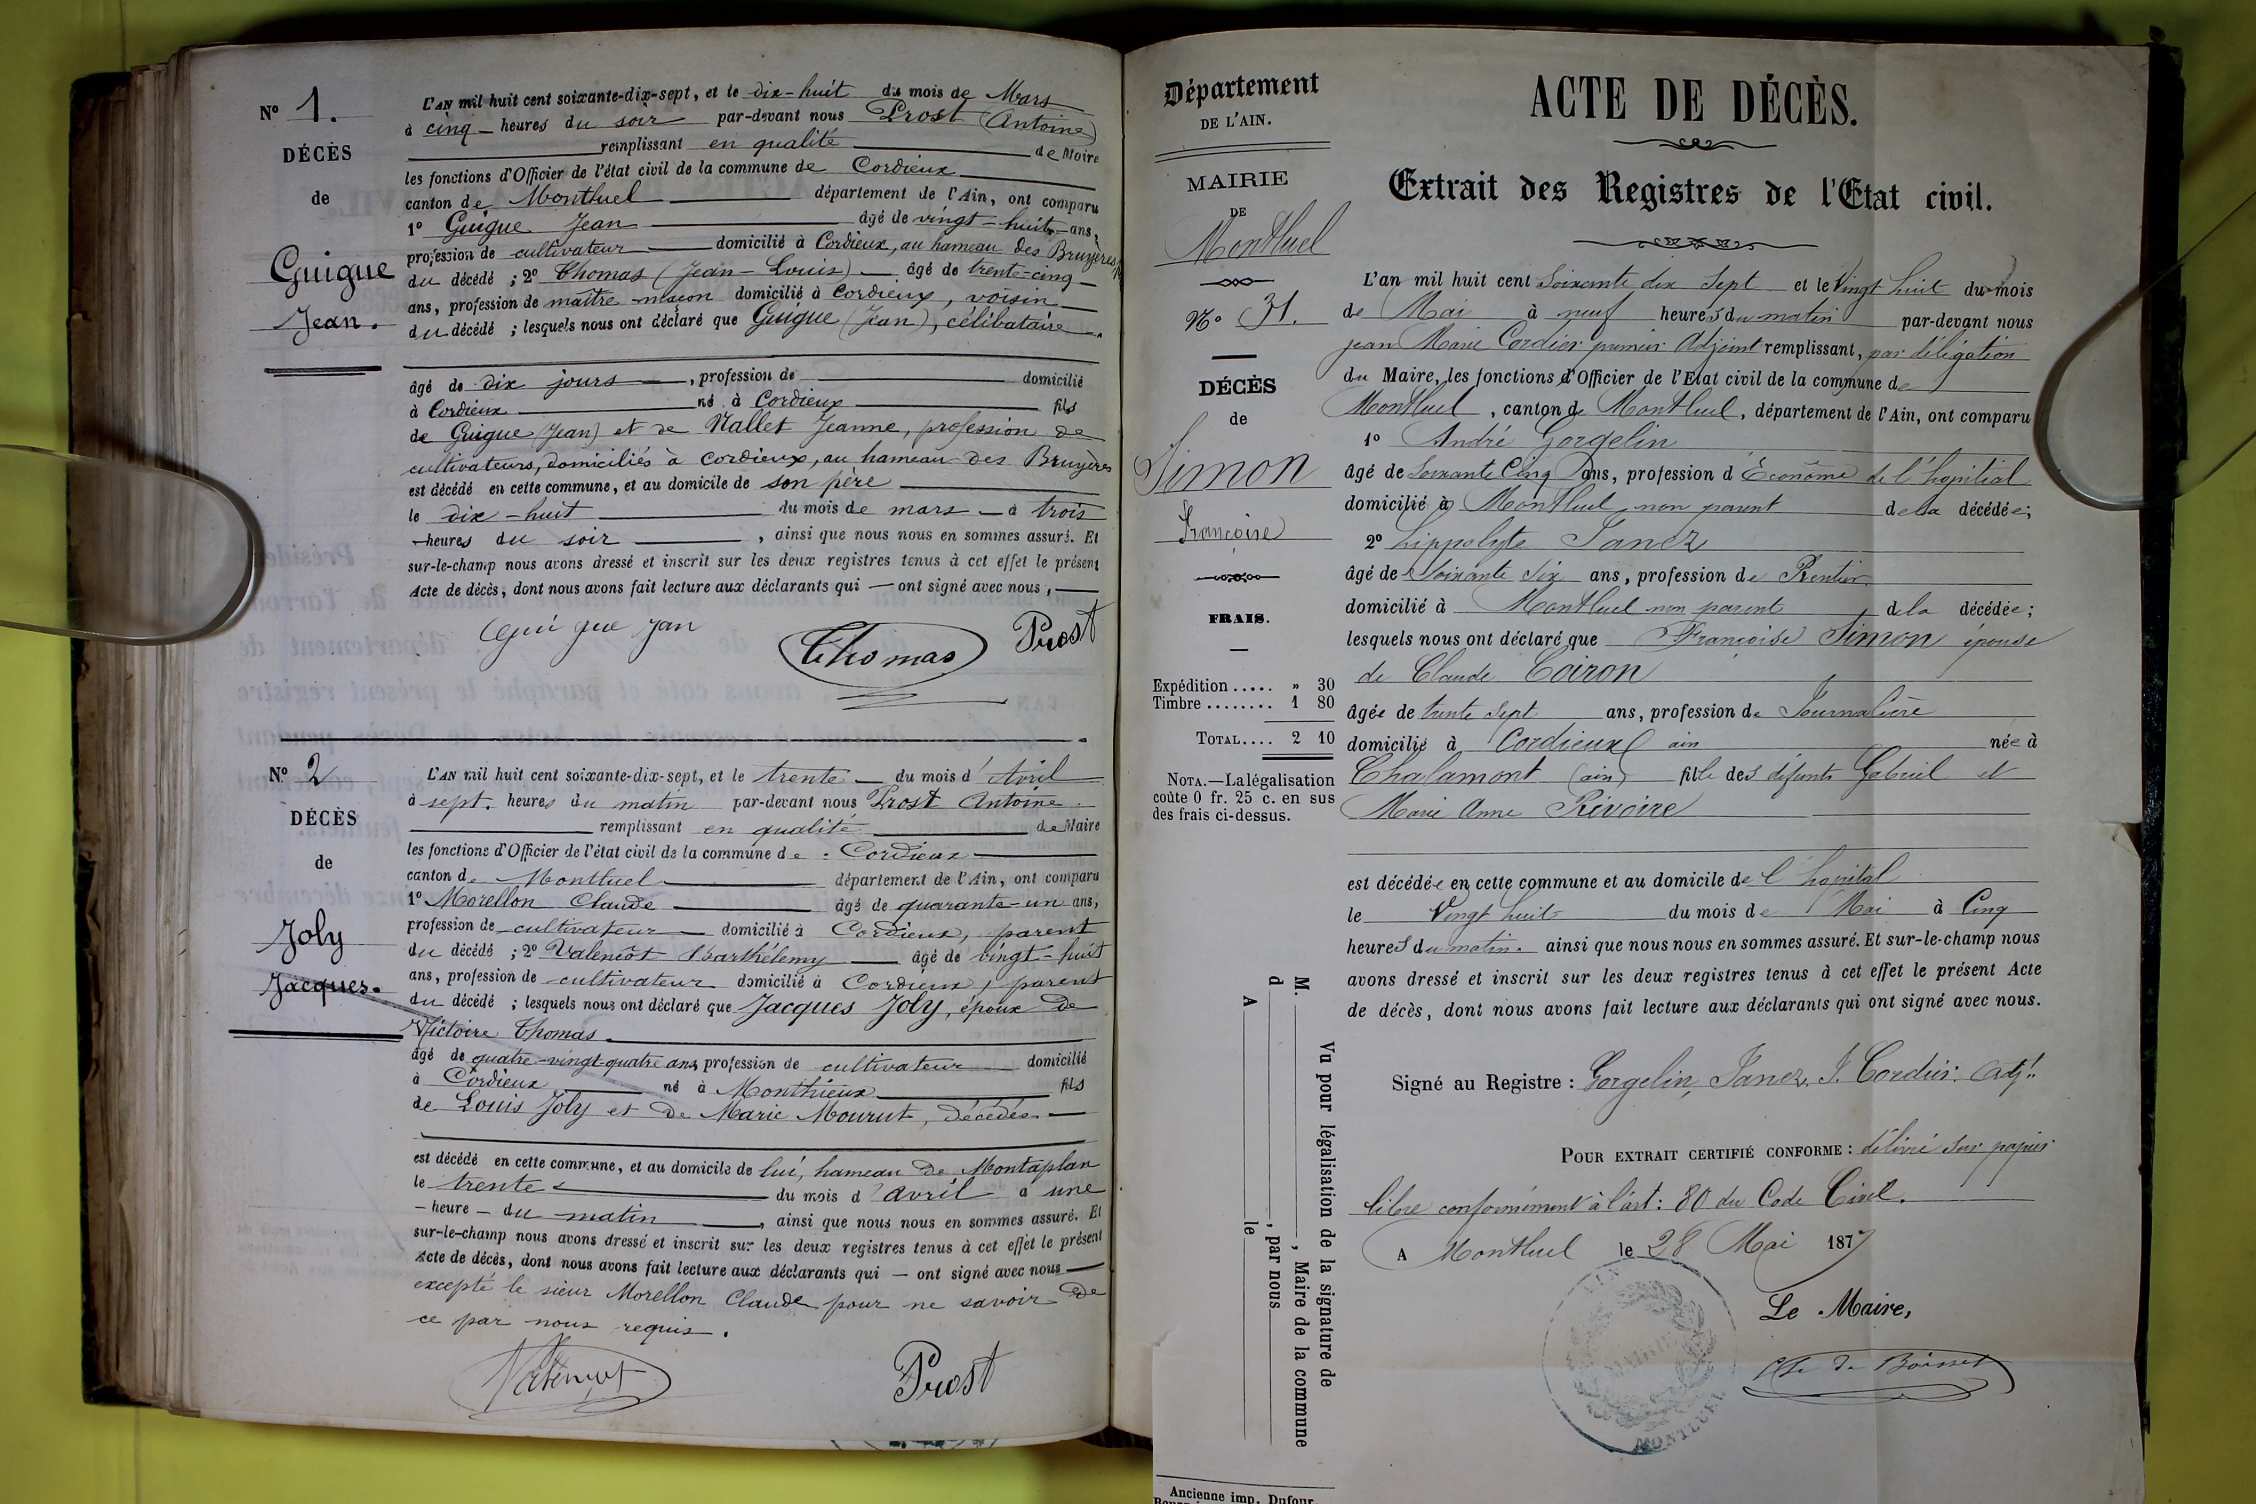 N° 1.
DÉCÈS
de
Guigue
Jean.
L'AN mil huit cent soixante-dix-sept, et le dix-huit du mois de Mars
à cinq heures du soir par-devant nous Prost (Antoine)
remplissant en qualité de Maire
les fonctions d'Officier de l'état civil de la commune de Cordieux
canton de Montluel département de l'Ain, ont comparu
1° Guigue Jean âgé de vingt-huit ans,
profession de cultivateur domicilié à Cordieux, au hameau des Bruyères
du décédé ; 2° Thomas (Jean-Louis) âgé de trente-cinq
ans, profession de maître-maçon domicilié à Cordieux, voisin
du décédé ; lesquels nous ont déclaré que Guigue (Jean), célibataire
âgé de dix jours, profession de domicilié
à Cordieux né à Cordieux fils
de Guigue (Jean) et de Nallet Jeanne, profession de
cultivateurs, domiciliés à Cordieux, au hameau des Bruyères
est décédé en cette commune, et au domicile de son père
le dix-huit du mois de mars à trois
heures du soir, ainsi que nous nous en sommes assuré. Et
sur-le-champ nous avons dressé et inscrit sur les deux registres tenus à cet effet le présent
Acte de décès, dont nous avons fait lecture aux déclarants qui — ont signé avec nous,
Gui gue jan
Thomas
Prost
N° 2
DÉCÈS
de
Joly
Jacques.
L'AN mil huit cent soixante-dix-sept, et le trente du mois d'Avril
à sept heures du matin par-devant nous Prost Antoine
remplissant en qualité de Maire
les fonctions d'Officier de l'état civil de la commune de Cordieux
canton de Montluel département de l'Ain, ont comparu
1° Morellon Claude âgé de quarante-un ans,
profession de cultivateur domicilié à Cordieux, parent
du décédé ; 2° Valençot Barthélemy âgé de vingt-huit
ans, profession de cultivateur domicilié à Cordieux, parent
du décédé ; lesquels nous ont déclaré que Jacques Joly, époux de
Victoire Thomas
âgé de quatre-vingt-quatre ans, profession de cultivateur domicilié
à Cordieux né à Monthieux fils
de Louis Joly et de Marie Mourut, décédés
est décédé en cette commune, et au domicile de lui, hameau de Montaplan
le trente du mois d'avril à une
heure du matin, ainsi que nous nous en sommes assuré. Et
sur-le-champ nous avons dressé et inscrit sur les deux registres tenus à cet effet le présent
Acte de décès, dont nous avons fait lecture aux déclarants qui — ont signé avec nous
excepté le sieur Morellon Claude pour ne savoir de
ce par nous requis.
Prost
Département
DE L'AIN.
MAIRIE
DE
Montluel
N° 31.
DÉCÈS
de
Simon
Françoise
FRAIS.
Expédition..... » 30
Timbre........ 1 80
TOTAL.... 2 10
NOTA.—La légalisation
coûte 0 fr. 25 c. en sus
des frais ci-dessus.
Vu pour légalisation de la signature de
M. , Maire de la commune
d , par nous
A le
Ancienne imp. Dufour.
ACTE DE DÉCÈS.
Extrait des Registres de l'Etat civil.
L'an mil huit cent soixante dix sept et le Vingt huit du mois
de Mai à neuf heures du matin par-devant nous
jean Marie Cordier premier Adjoint remplissant, par délégation
du Maire, les fonctions d'Officier de l'Etat civil de la commune de
Montluel, canton de Montluel, département de l'Ain, ont comparu
1° André Gorgelin
âgé de Soixante Cinq ans, profession d'Econôme de l'hopitial
domicilié à Montluel non parent de la décédée;
2° hippolyte Janez
âgé de Soixante Six ans, profession de Rentier
domicilié à Montluel non parent, de la décédée;
lesquels nous ont déclaré que Françoise Simon épouse
de Claude Coiron
âgée de trente sept ans, profession de Journalière
domicilié à Cordieux (ain née à
Chalamont (ain) fille des défunts Gabriel et
Marie Anne Rivoire
est décédée en cette commune et au domicile de l'hopital
le Vingt huit du mois de Mai à Cinq
heures du matin. ainsi que nous nous en sommes assuré. Et sur-le-champ nous
avons dressé et inscrit sur les deux registres tenus à cet effet le présent Acte
de décès, dont nous avons fait lecture aux déclarants qui ont signé avec nous.
Signé au Registre : Gorgelin, Janez, J. Cordier. adjt.
POUR EXTRAIT CERTIFIÉ CONFORME : délivré sur papier
libre conformément à l'art : 80 du Code Civil.
A Montluel le 28 Mai 1877
Le Maire,
MONTLUEL